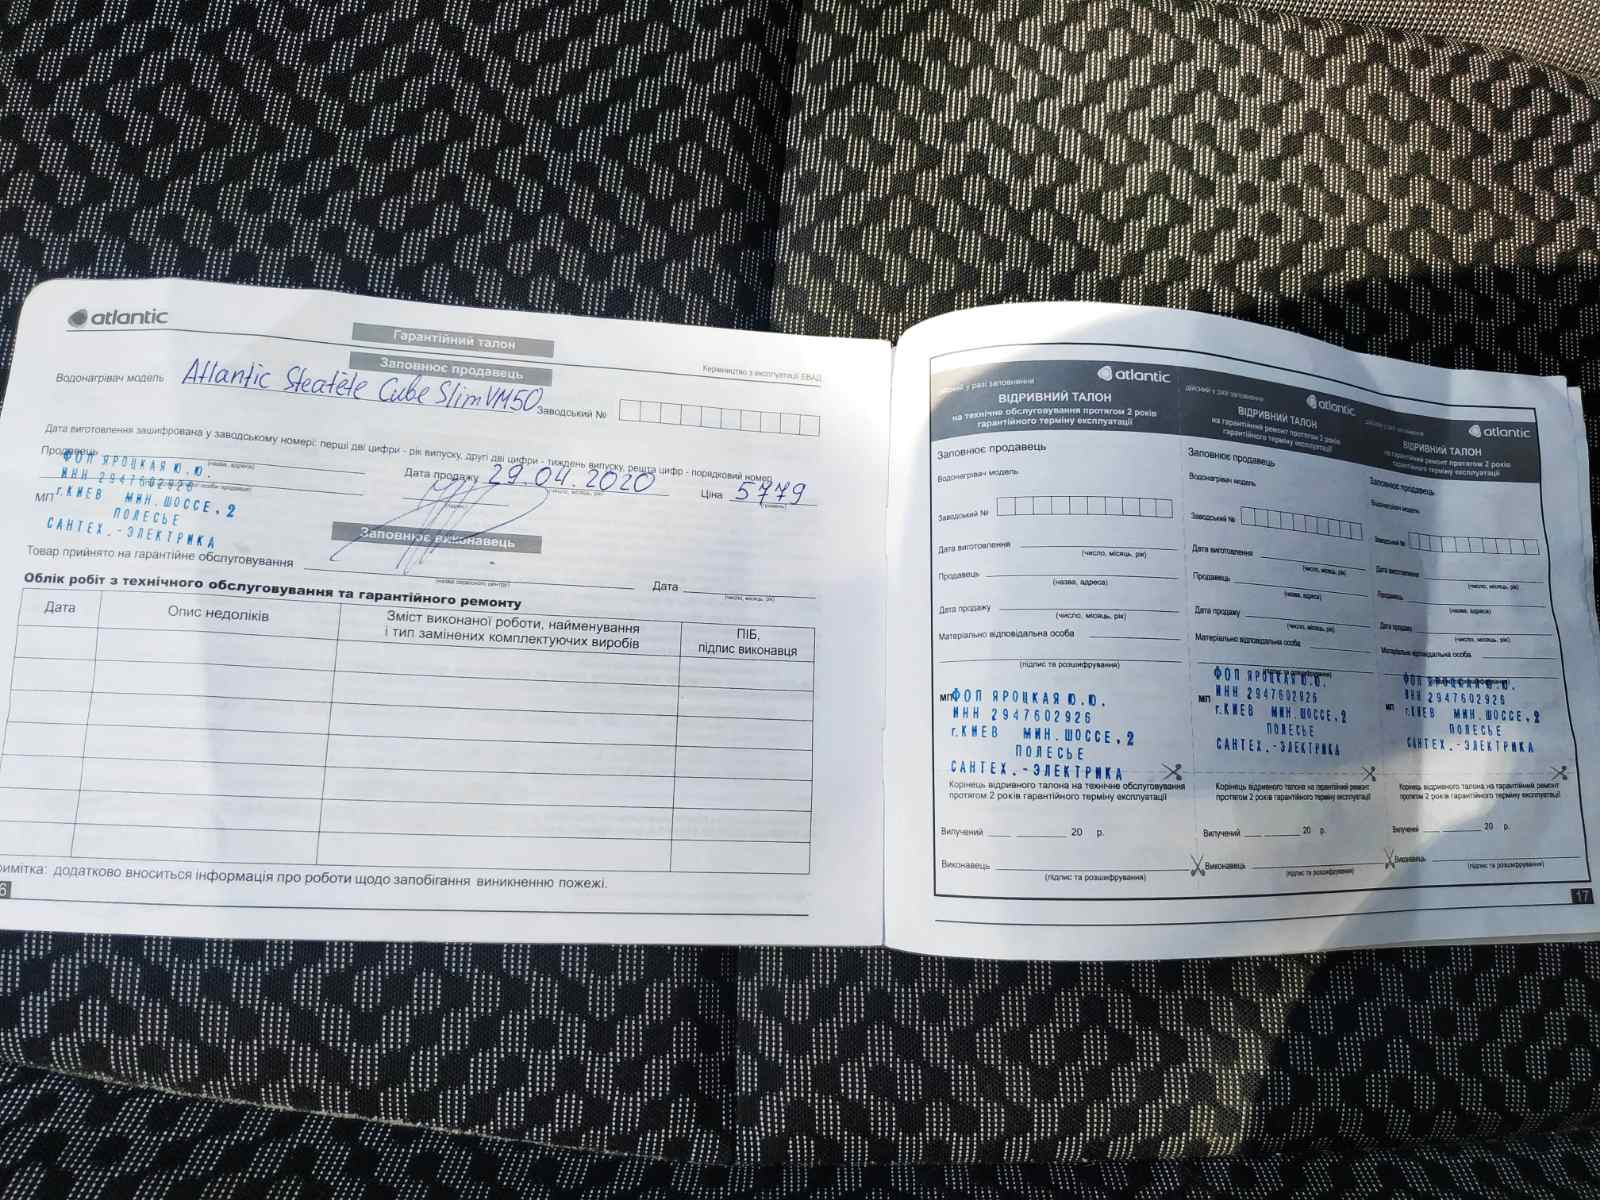 atlantic
Гарантійний талон
Керівництво з експлуатації ЕВАД
Заповнює продавець
Водонагрівач модель Atlantic Steatète Cube Slim VM50 Заводський №
Дата виготовлення зашифрована у заводському номері: перші дві цифри - рік випуску, другі дві цифри - тиждень випуску, решта цифр - порядковий номер
Продавець
(назва, адреса)
Дата продажу 29.04.2020 Ціна 5779
(число, місяць, рік)
МП
ФОП ЯРОЦКАЯ Ю.Ю.
ИНН 2947602926
г.КИЕВ МИН.ШОССЕ,2
ПОЛЕСЬЕ
САНТЕХ.-ЭЛЕКТРИКА
Заповнює виконавець
Товар прийнято на гарантійне обслуговування
Дата
(число, місяць, рік)
Облік робіт з технічного обслуговування та гарантійного ремонту
Дата
Опис недоліків
Зміст виконаної роботи, найменування
і тип замінених комплектуючих виробів
ПІБ,
підпис виконавця
римітка: додатково вноситься інформація про роботи щодо запобігання виникненню пожежі.
6
atlantic
у разі заповнення
ВІДРИВНИЙ ТАЛОН
на технічно обслуговування протягом 2 років
гарантійного терміну експлуатації
Заповнює продавець
Водонагрівач модель
Заводський №
Дата виготовлення
(число, місяць, рік)
Продавець
(назва, адреса)
Дата продажу
(число, місяць, рік)
Матеріально відповідальна особа
(підпис та розшифрування)
МП
ФОП ЯРОЦКАЯ Ю.Ю.
ИНН 2947602926
г.КИЕВ МИН.ШОССЕ,2
ПОЛЕСЬЕ
САНТЕХ.-ЭЛЕКТРИКА
Корінець відривного талона на технічне обслуговування
протягом 2 років гарантійного терміну експлуатації
Вилучений 20 р.
Виконавець
(підпис та розшифрування)
atlantic
дійсний у разі заповнення
ВІДРИВНИЙ ТАЛОН
на гарантійний ремонт протягом 2 років
гарантійного терміну експлуатації
Заповнює продавець
Водонагрівач модель
Заводський №
Дата виготовлення
(число, місяць, рік)
Продавець
(назва, адреса)
Дата продажу
(число, місяць, рік)
Матеріально відповідальна особа
МП
ФОП ЯРОЦКАЯ Ю.Ю.
ИНН 2947602926
г.КИЕВ МИН.ШОССЕ,2
ПОЛЕСЬЕ
САНТЕХ.-ЭЛЕКТРИКА
Корінець відривного талона на гарантійний ремонт
протягом 2 років гарантійного терміну експлуатації
Вилучений 20 р.
Виконавець
(підпис та розшифрування)
atlantic
ВІДРИВНИЙ ТАЛОН
на гарантійний ремонт протягом 2 років
гарантійного терміну експлуатації
Заповнює продавець
Водонагрівач модель
Заводський №
Дата виготовлення
(число, місяць, рік)
Продавець
(назва, адреса)
Дата продажу
(число, місяць, рік)
Матеріально відповідальна особа
МП
ФОП ЯРОЦКАЯ Ю.Ю.
ИНН 2947602926
г.КИЕВ МИН.ШОССЕ,2
ПОЛЕСЬЕ
САНТЕХ.-ЭЛЕКТРИКА
Корінець відривного талона на гарантійний ремонт
протягом 2 років гарантійного терміну експлуатації
Вилучений 20 р.
Виконавець
(підпис та розшифрування)
17